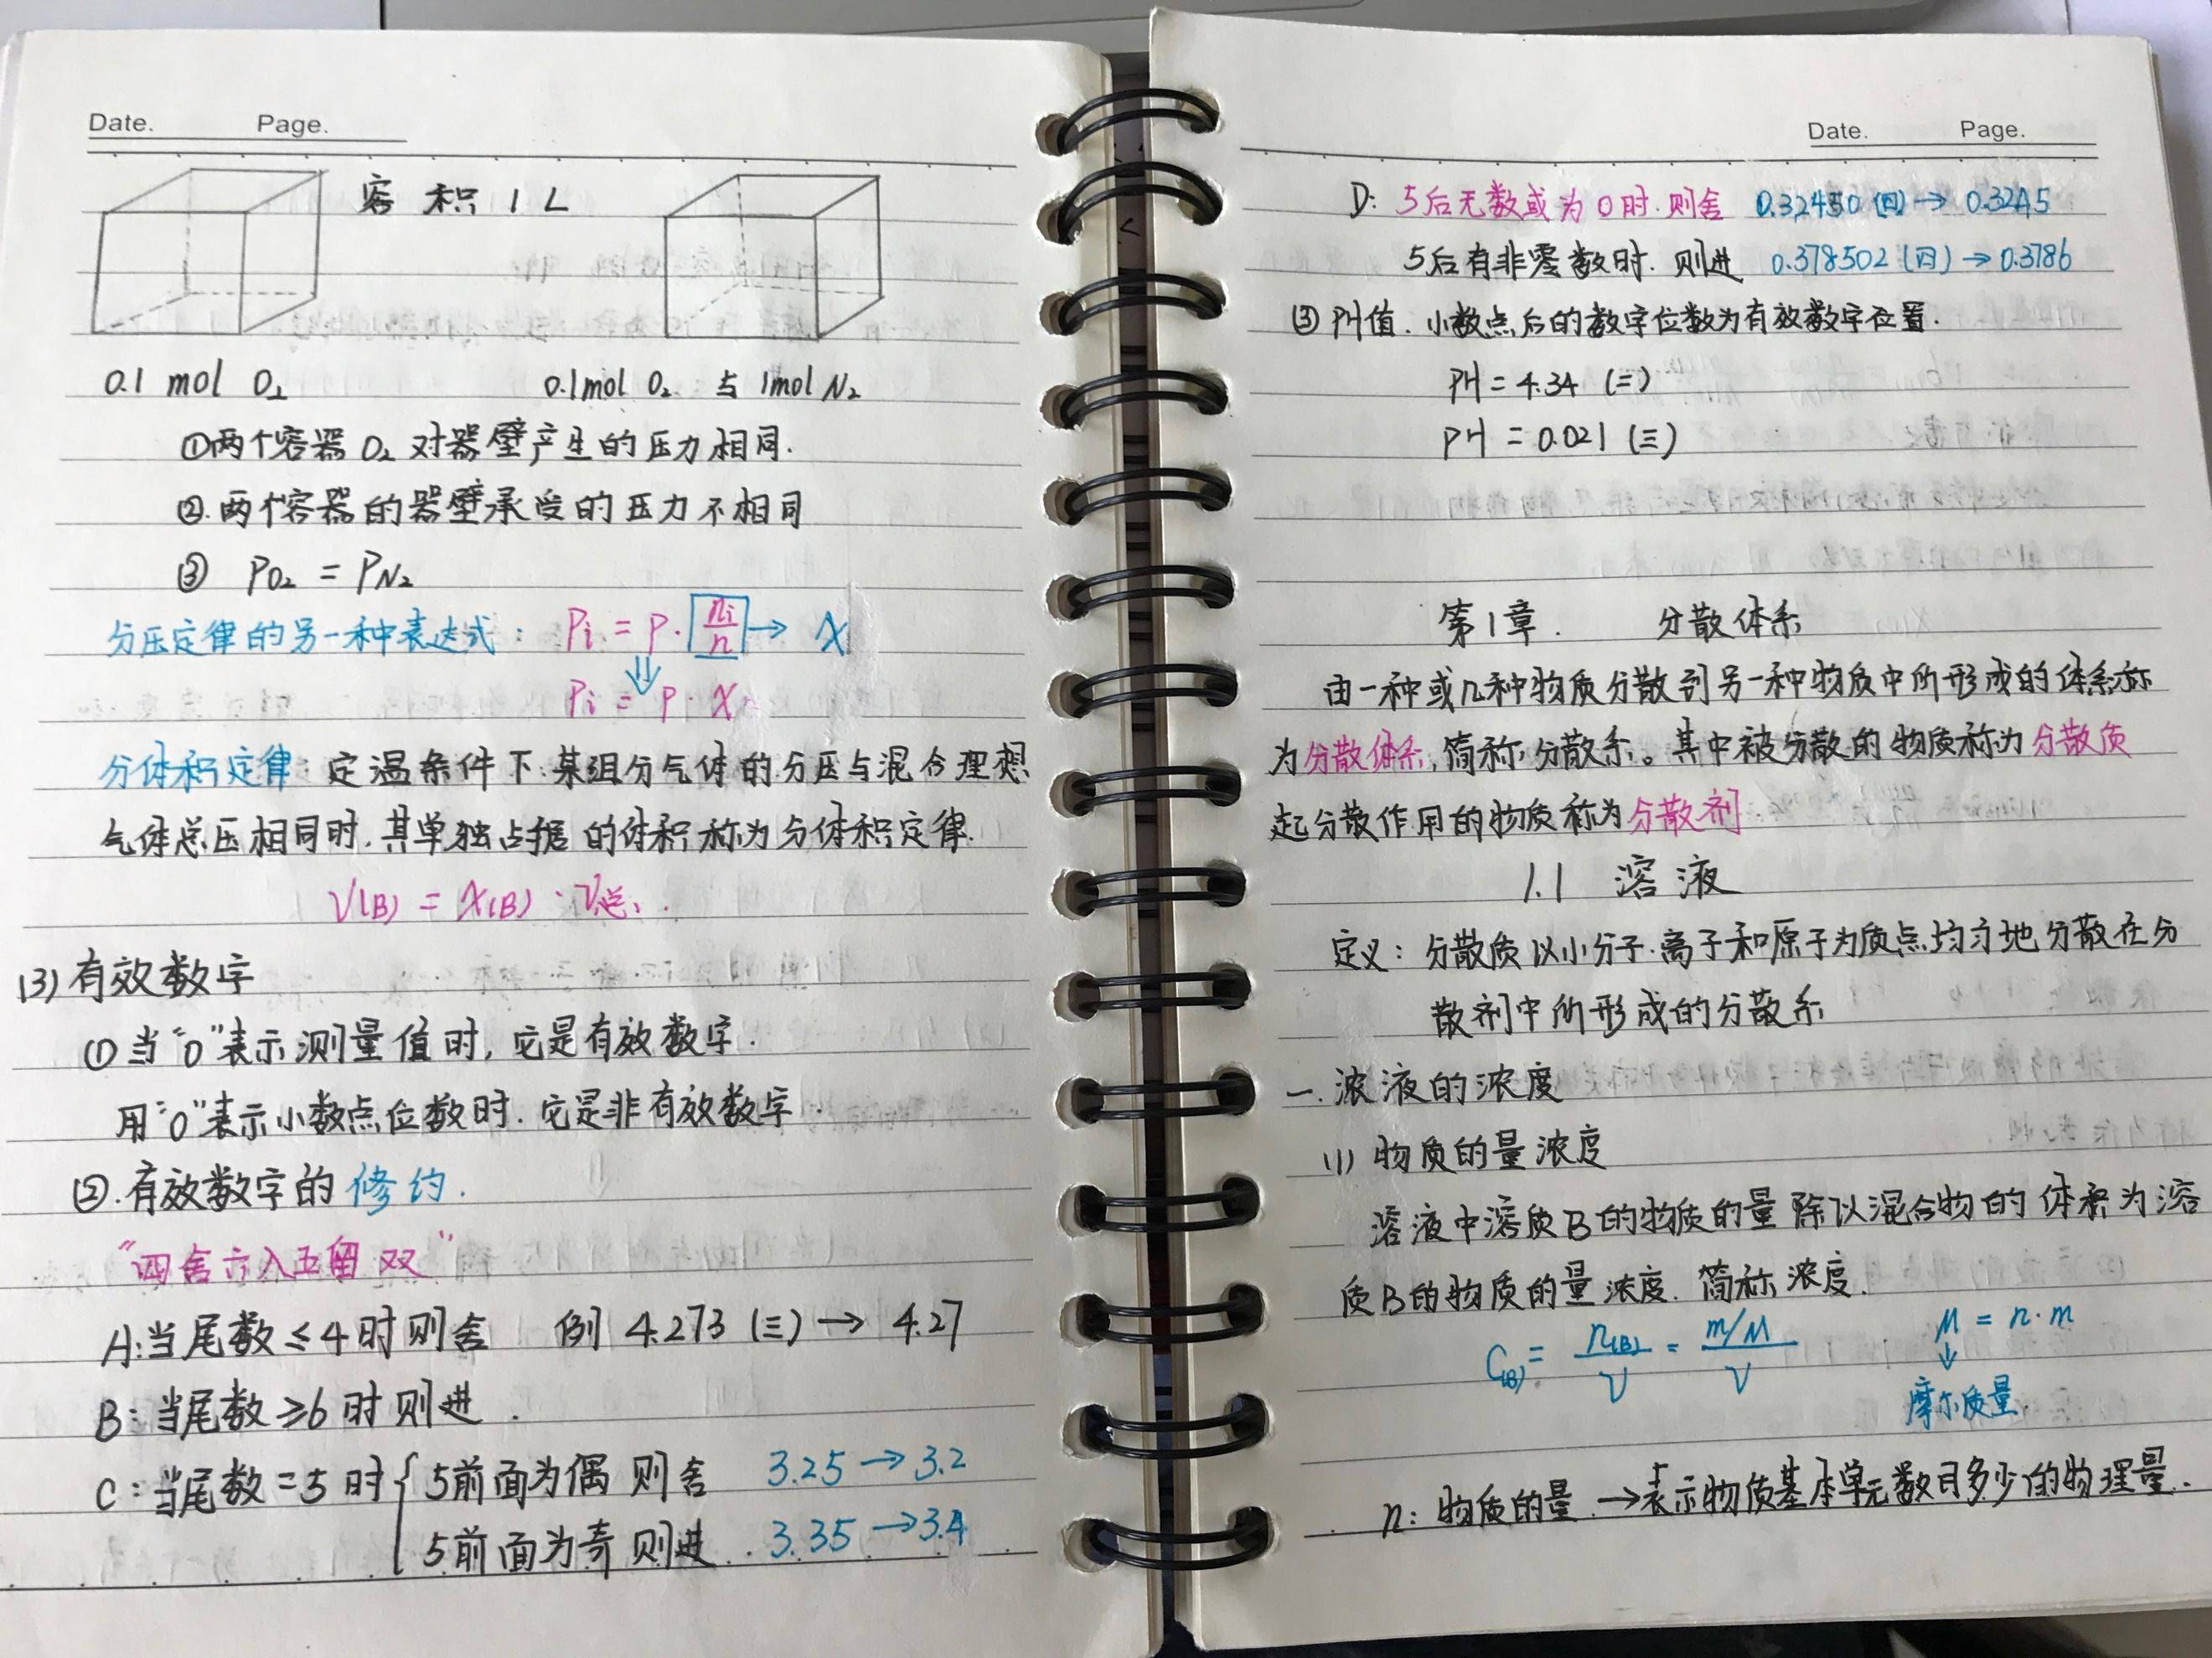 Date. Page.
容积 1 L
0.1 mol O₂ 0.1mol O₂ 与 1mol N₂
①两个容器 O₂ 对器壁产生的压力相同.
②.两个容器的器壁承受的压力不相同
③ PO₂ = PN₂
分压定律的另一种表达式: Pi = P · ni/n → X
⇓
Pi = P · X
分体积定律: 定温条件下.某组分气体的分压与混合理想
气体总压相同时.其单独占据的体积称为分体积定律.
V(B) = X(B) · V总.
(3) 有效数字
① 当“0”表示测量值时, 它是有效数字.
用“0”表示小数点位数时. 它是非有效数字
②.有效数字的修约.
“四舍六入五留双”
A:当尾数≤4时则舍 例 4.273 (三) → 4.27
B:当尾数≥6时则进.
C:当尾数=5时{ 5前面为偶 则舍 3.25 → 3.2
5前面为奇 则进. 3.35 → 3.4
Date. Page.
D: 5后无数或为0时.则舍 0.32450 (四) → 0.3245
5后有非零数时. 则进 0.378502 (四) → 0.3786
③ PH值. 小数点后的数字位数为有效数字位置.
PH = 4.34 (二)
PH = 0.021 (三)
第1章. 分散体系
由一种或几种物质分散到另一种物质中所形成的体系称
为分散体系,简称分散系。其中被分散的物质称为分散质
起分散作用的物质称为分散剂
1.1 溶液
定义: 分散质以小分子.离子和原子为质点均匀地分散在分
散剂中所形成的分散系
一.浓液的浓度
(1) 物质的量浓度
溶液中溶质B的物质的量除以混合物的体积为溶
质B的物质的量浓度. 简称浓度.
C(B) = n(B)/V = m/M/V M = n·m
↓
摩尔质量.
n: 物质的量. → 表示物质基本单元数目多少的物理量.